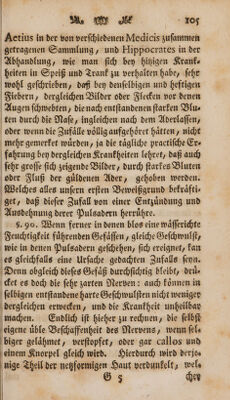 105
Aetius in der von verschiedenen Medicis zusammen
getragenen Sammlung, und Hippocrates in der
Abhandlung, wie man sich bey hitzigen Krank-
heiten in Speiß und Trank zu verhalten habe, sehr
wohl geschrieben, daß bey denselbigen und heftigen
Fiebern, dergleichen Bilder oder Flecken vor denen
Augen schwebten, die nach entstandenen starken Blu-
ten durch die Nase, ingleichen nach dem Aderlassen,
oder wenn die Zufälle völlig aufgehört hätten, nicht
mehr gemerket würden, ja die tägliche practische Er-
fahrung bey dergleichen Krankheiten lehret, daß auch
sehr grosse sich zeigende Bilder, durch starkes Bluten
oder Fluß der güldenen Ader, gehoben werden.
Welches alles unsern ersten Beweißgrund bekräfti-
get, daß dieser Zufall von einer Entzündung und
Ausdehnung derer Pulsadern herrühre.
§. 90. Wenn ferner in denen blos eine wässerichte
Feuchtigkeit führenden Gefässen, gleiche Geschwulst,
wie in denen Pulsadern geschehen, sich ereignet, kan
es gleichfalls eine Ursache gedachten Zufalls seyn.
Denn obgleich dieses Gefäß durchsichtig bleibt, drü-
cket es doch die sehr zarten Nerven: auch können in
selbigen entstandene harte Geschwulsten nicht weniger
dergleichen erwecken, und die Krankheit unheilbar
machen. Endlich ist hieher zu rechnen, die selbst
eigene üble Beschaffenheit des Nervens, wenn sel-
biger gelähmet, verstopfet, oder gar callos und
einem Knorpel gleich wird. Hierdurch wird derje-
nige Theil der netzförmigen Haut verdunkelt, wel-
G 5 cher